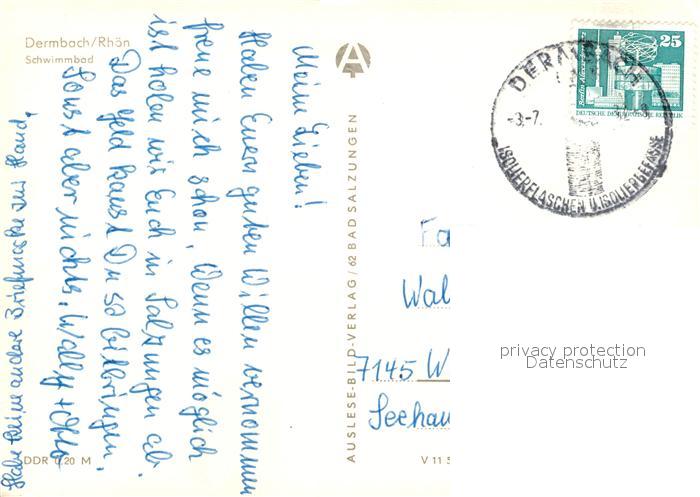 Dermbach/Rhön
Schwimmbad
Meine Lieben!
Haben Euern guten Willen vernommen
freue mich schon, Wenn es möglich
ist holen wir Euch in Salzungen ab.
Das Geld kannst Du so beibringen.
Sonst aber nichts, Wally + Otto
Habe keine andere Briefmarke zur Hand,
DDR 0,20 M
AUSLESE-BILD-VERLAG / 62 BAD SALZUNGEN
V 11 5
25
Berlin Alexanderplatz
DEUTSCHE DEMOKRATISCHE REPUBLIK
DERMBACH
-3.-7.
ISOLIERFLASCHEN U. ISOLIERGEFÄSSE
Fa
Wal
7145 W
Seehau
privacy protection
Datenschutz